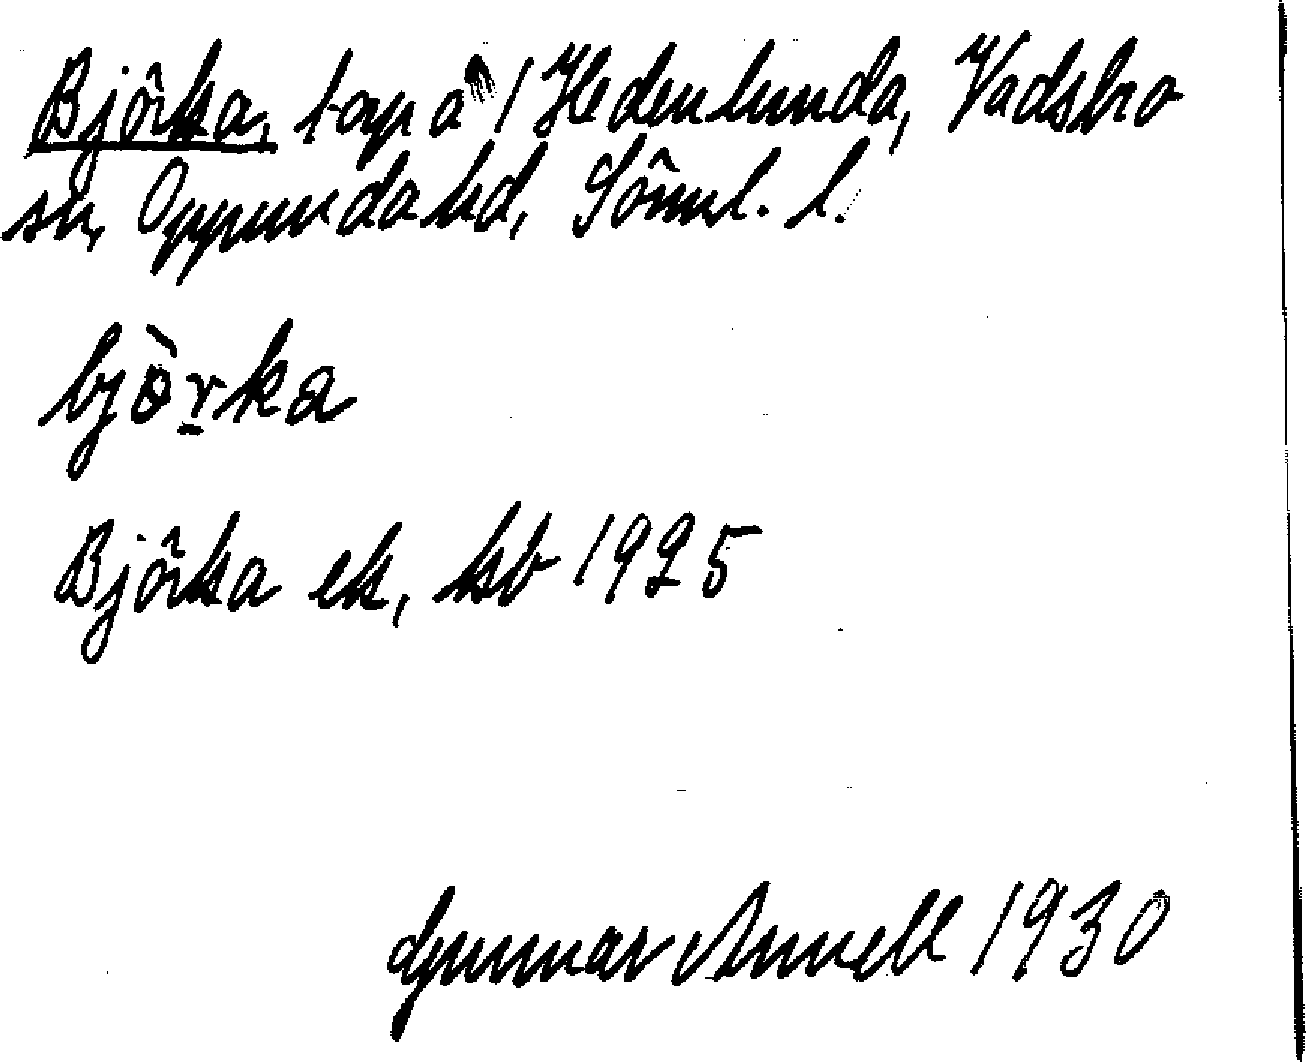 Björka, torp å 1 Hedenlunda, Vadsbro
sn, Oppunda hd, Söml. l.
bjòrka
Björka ek, kb 1925
Gunnar Annell 1930